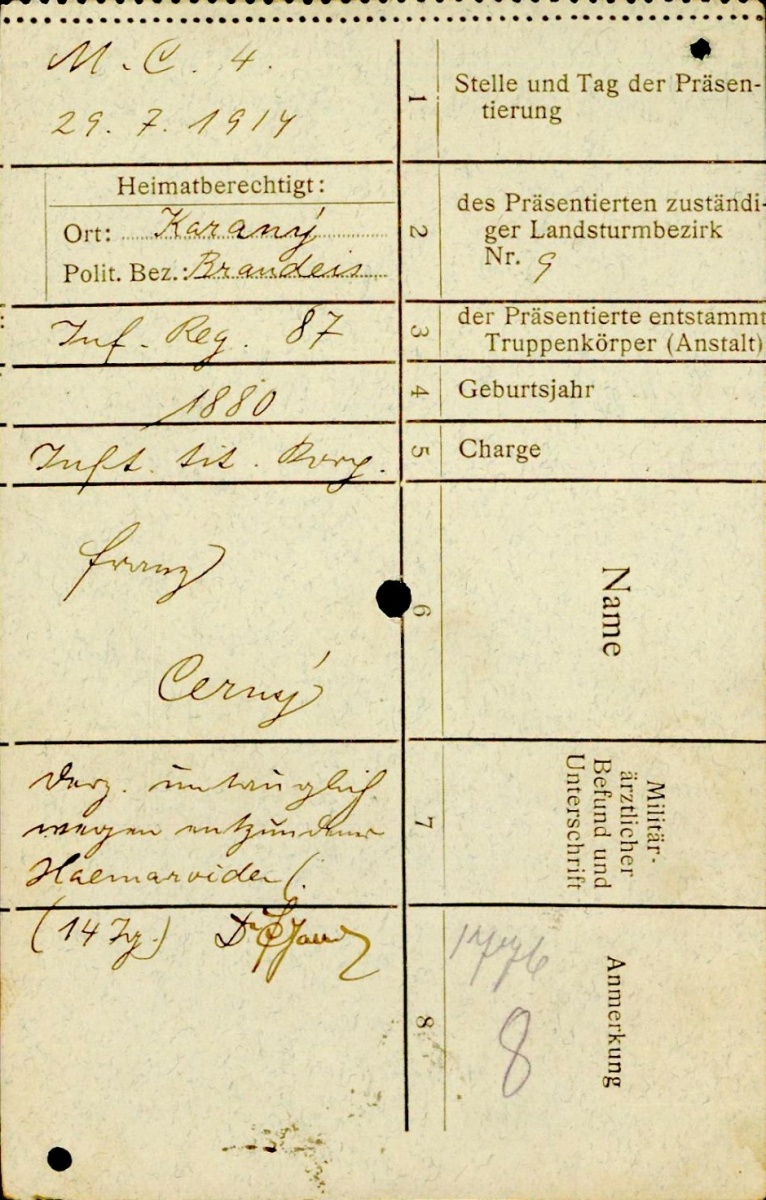 M. C. 4.
29. 7. 1914
1
Stelle und Tag der Präsen-
tierung
Heimatberechtigt:
Ort: Karaný
Polit. Bez.: Brandeis
2
des Präsentierten zuständi-
ger Landsturmbezirk
Nr. 9
Inf. Reg. 87
3
der Präsentierte entstammt
Truppenkörper (Anstalt)
1880
4
Geburtsjahr
Inft. tit.
5
Charge
Franz
Cerný
6
Name
Derz. untauglich
wegen entzündener
Haemaroiden (.
7
Militär-
ärztlicher
Befund und
Unterschrift
(14 Tg.) Dr
8
Anmerkung
8